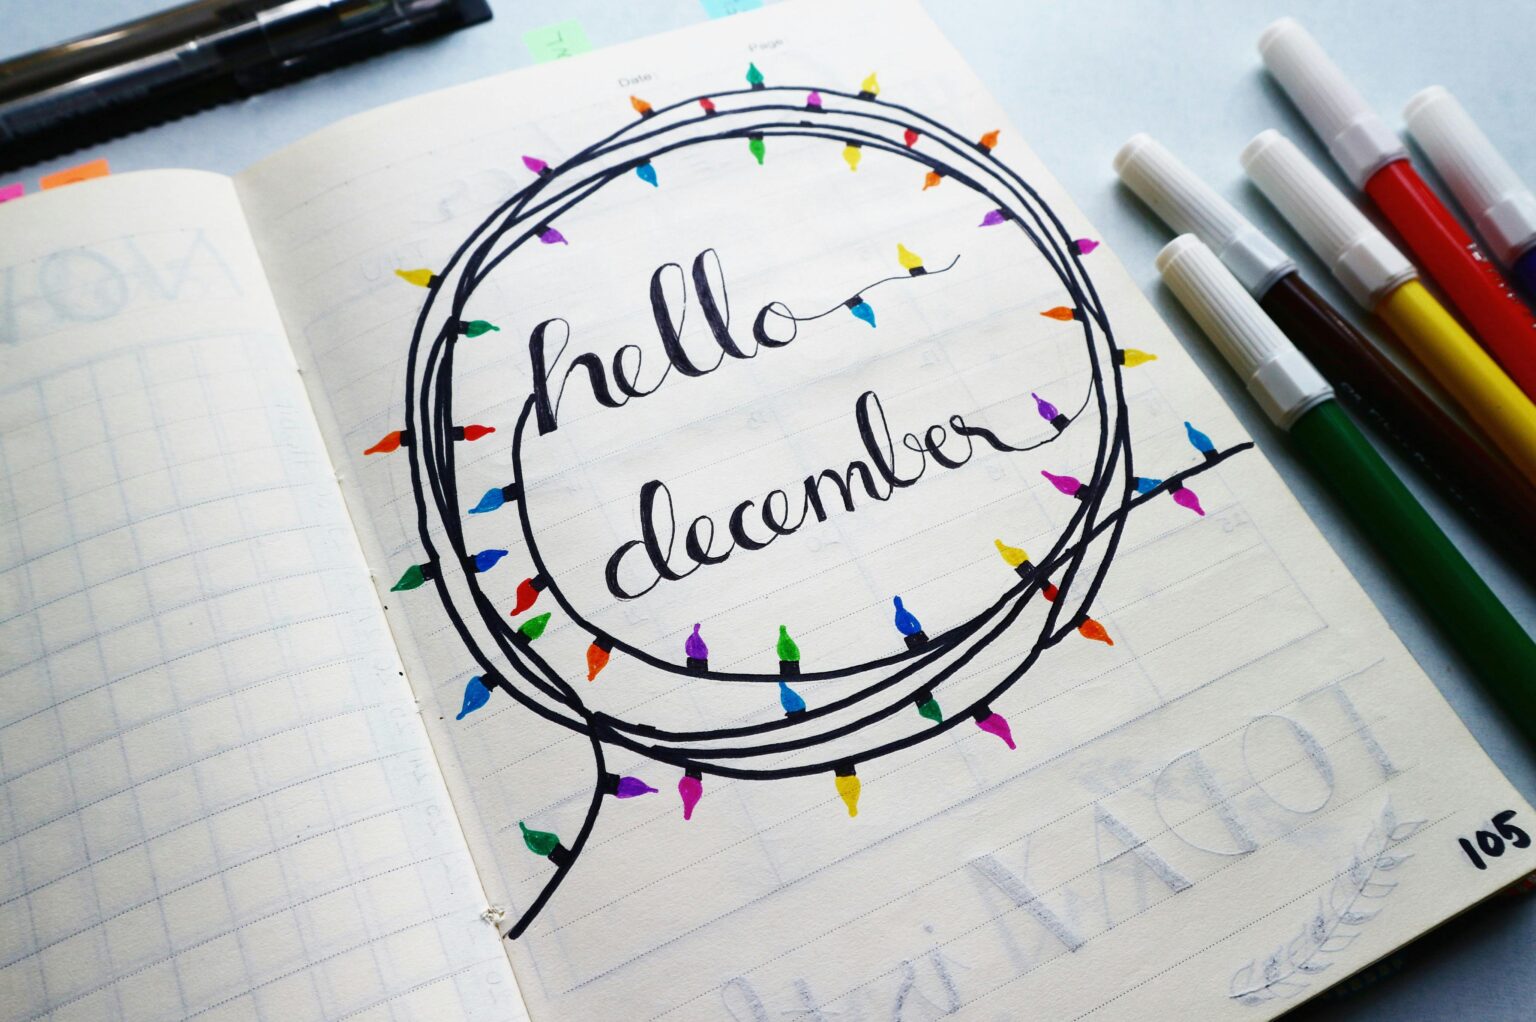 Date:
Page
hello
december
105